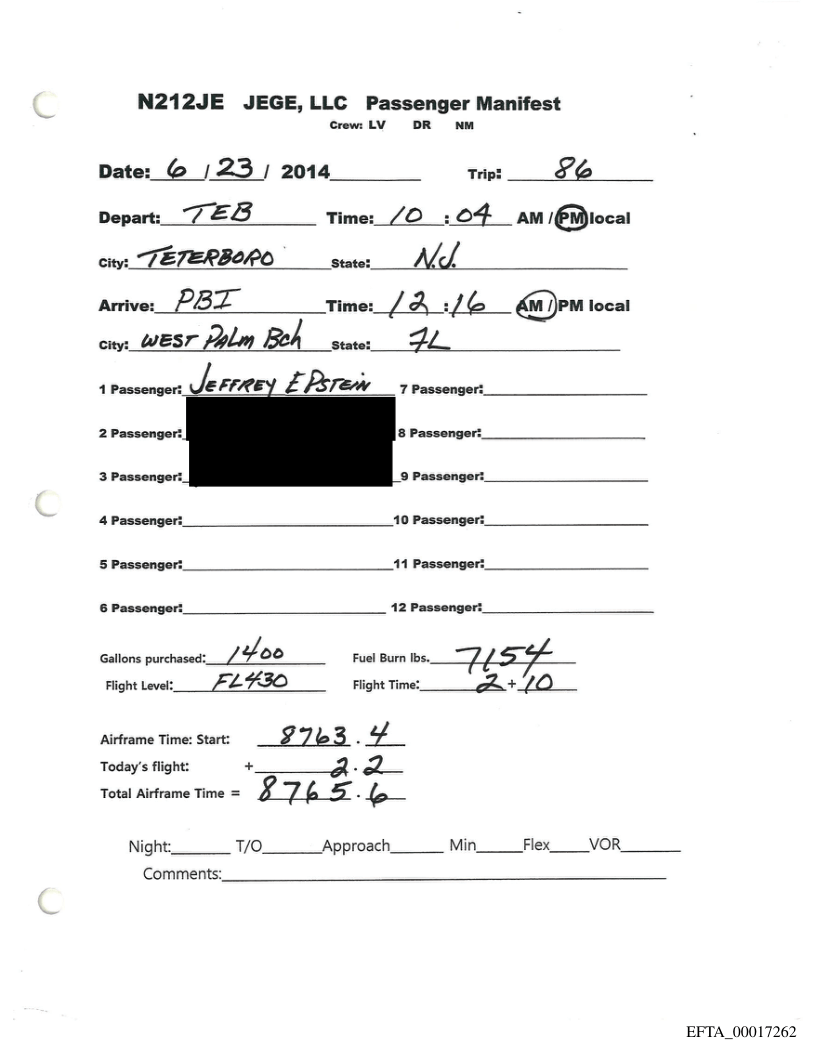 N212JE JEGE, LLC Passenger Manifest
Crew: LV DR NM
Date: 6 / 23 / 2014 Trip: 86
Depart: TEB Time: 10 : 04 AM / PM local
City: TETERBORO State: N.J.
Arrive: PBI Time: 12 : 16 AM / PM local
City: WEST PALM Bch State: FL
1 Passenger: JEFFREY EPSTEIN 7 Passenger:
2 Passenger: 8 Passenger:
3 Passenger: 9 Passenger:
4 Passenger: 10 Passenger:
5 Passenger: 11 Passenger:
6 Passenger: 12 Passenger:
Gallons purchased: 1400 Fuel Burn lbs. 7154
Flight Level: FL430 Flight Time: 2 + 10
Airframe Time: Start: 8763 . 4
Today's flight: + 2 . 2
Total Airframe Time = 8765 . 6
Night: T/O Approach Min Flex VOR
Comments:
EFTA_00017262